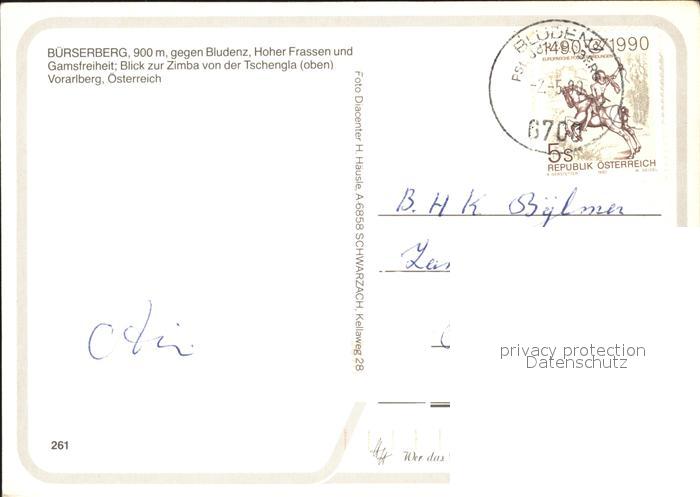 BÜRSERBERG, 900 m, gegen Bludenz, Hoher Frassen und
Gamsfreiheit; Blick zur Zimba von der Tschengla (oben)
Vorarlberg, Österreich
Foto Diacenter H. Häusle, A-6858 SCHWARZACH, Kellaweg 28
BLUDENZ
6700
1490 1990
5s
REPUBLIK ÖSTERREICH
B. H K Bijlmer
privacy protection
Datenschutz
261
Wer das